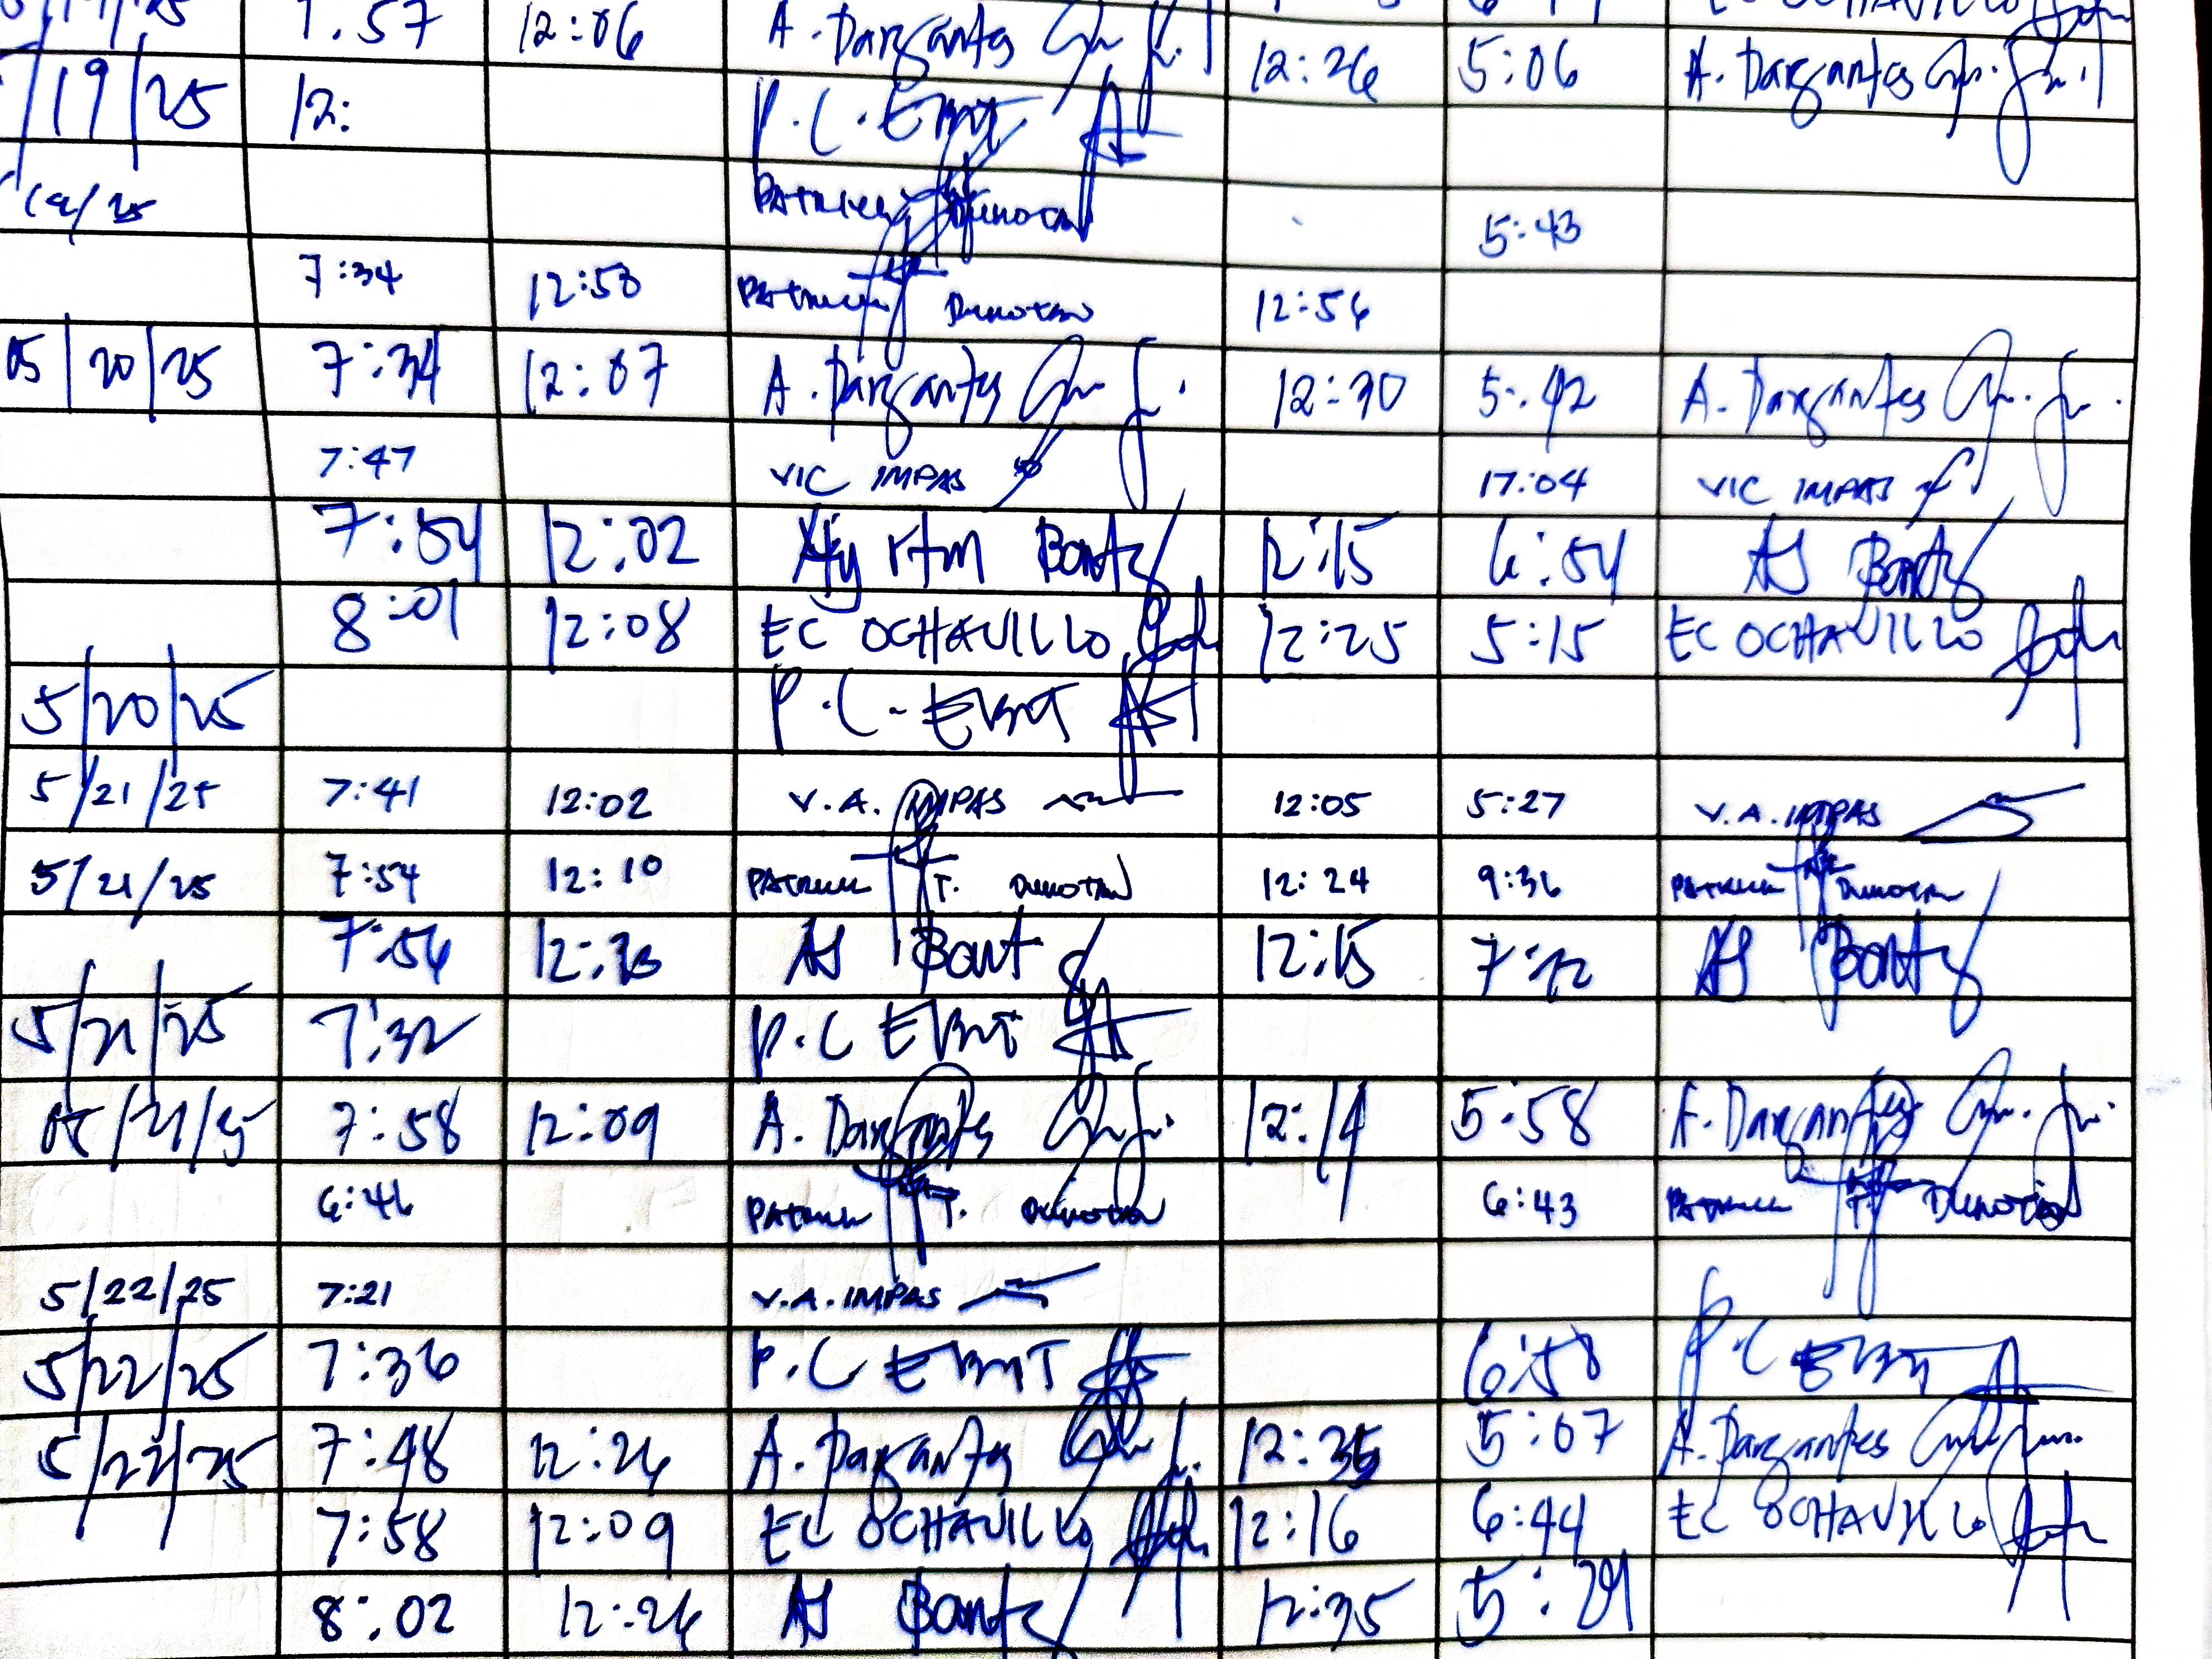 7:57 12:06 A. Dargantes
12:26 5:06 A. Dargantes
/19/25 12: P.C. EBNT
/25 5:43
7:34 12:50 PATRICK DUMOTAN 12:56
05/20/25 7:34 12:07 A. Dargantes 12:30 5:42 A. Dargantes
7:47 VIC IMPAS 17:04 VIC IMPAS
7:54 12:02 12:15 6:54 AJ
8:01 12:08 EC OCHAVILLO 12:25 5:15 EC OCHAVILLO
5/20/25 P.C. EBNT
5/21/25 7:41 12:02 V.A. IMPAS 12:05 5:27 V.A. IMPAS
5/21/25 7:54 12:10 PATRICK T. DUMOTAN 12:24 9:36 PATRICK DUMOTAN
7:56 AJ 12:15 AJ
5/21/25 7:32 P.C EBNT
05/21/25 7:58 12:09 A. Dargantes 12:14 5:58 A. Dargantes
6:46 PATRICK T. DUMOTAN 6:43 PATRICK T. DUMOTAN
5/22/25 7:21 V.A. IMPAS
5/22/25 7:36 P.C EBNT 6:58 P.C EBNT
5/22/25 7:48 12:26 A. Dargantes 12:35 5:07 A. Dargantes
7:58 12:09 EC OCHAVILLO 12:16 6:44 EC OCHAVILLO
8:02 12:26 AJ 12:35